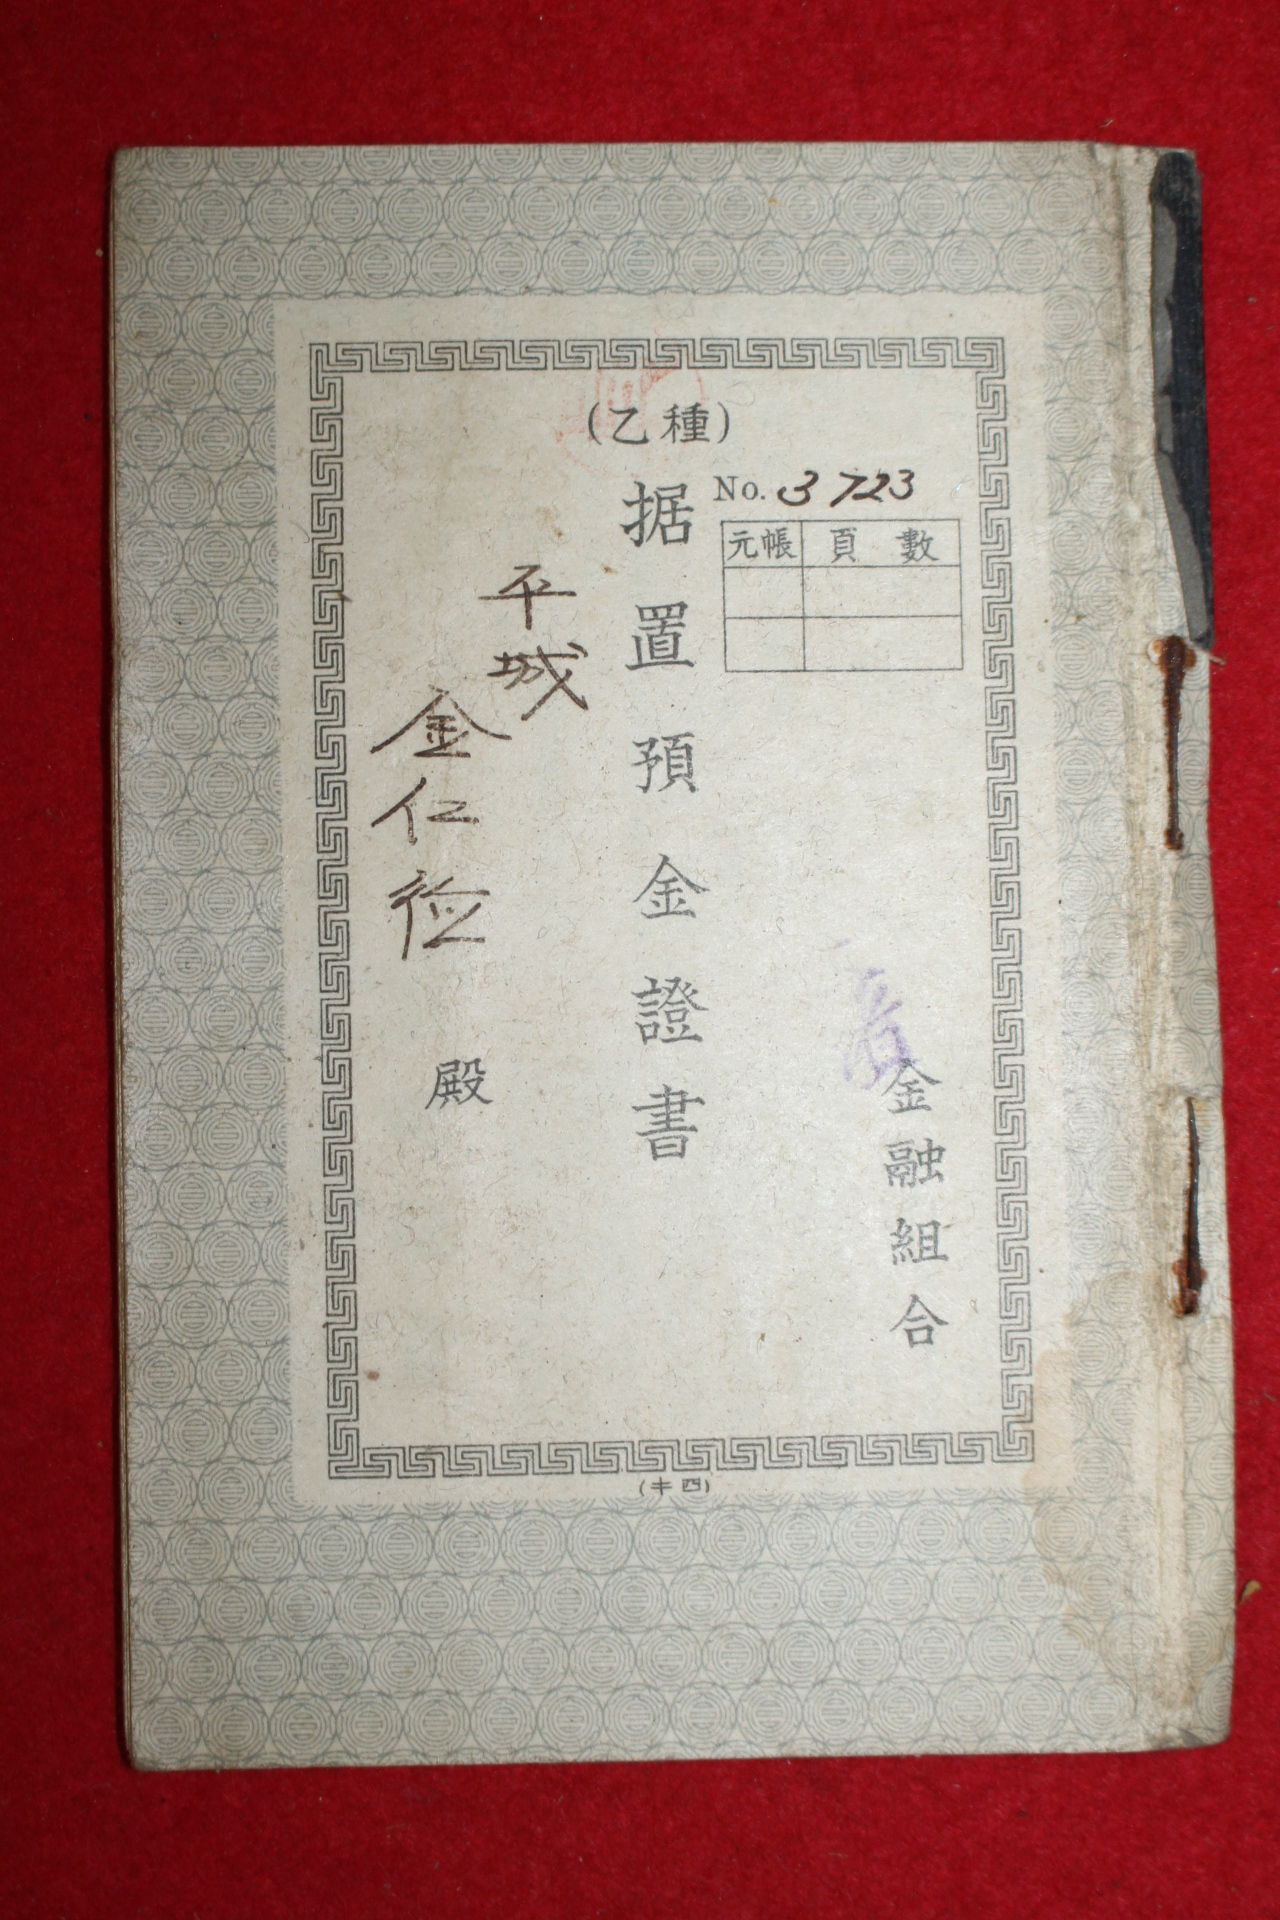 (乙種)
No. 3723
元帳 頁數
金融組合
据置預金證書
平城
金仁
殿
(キ四)